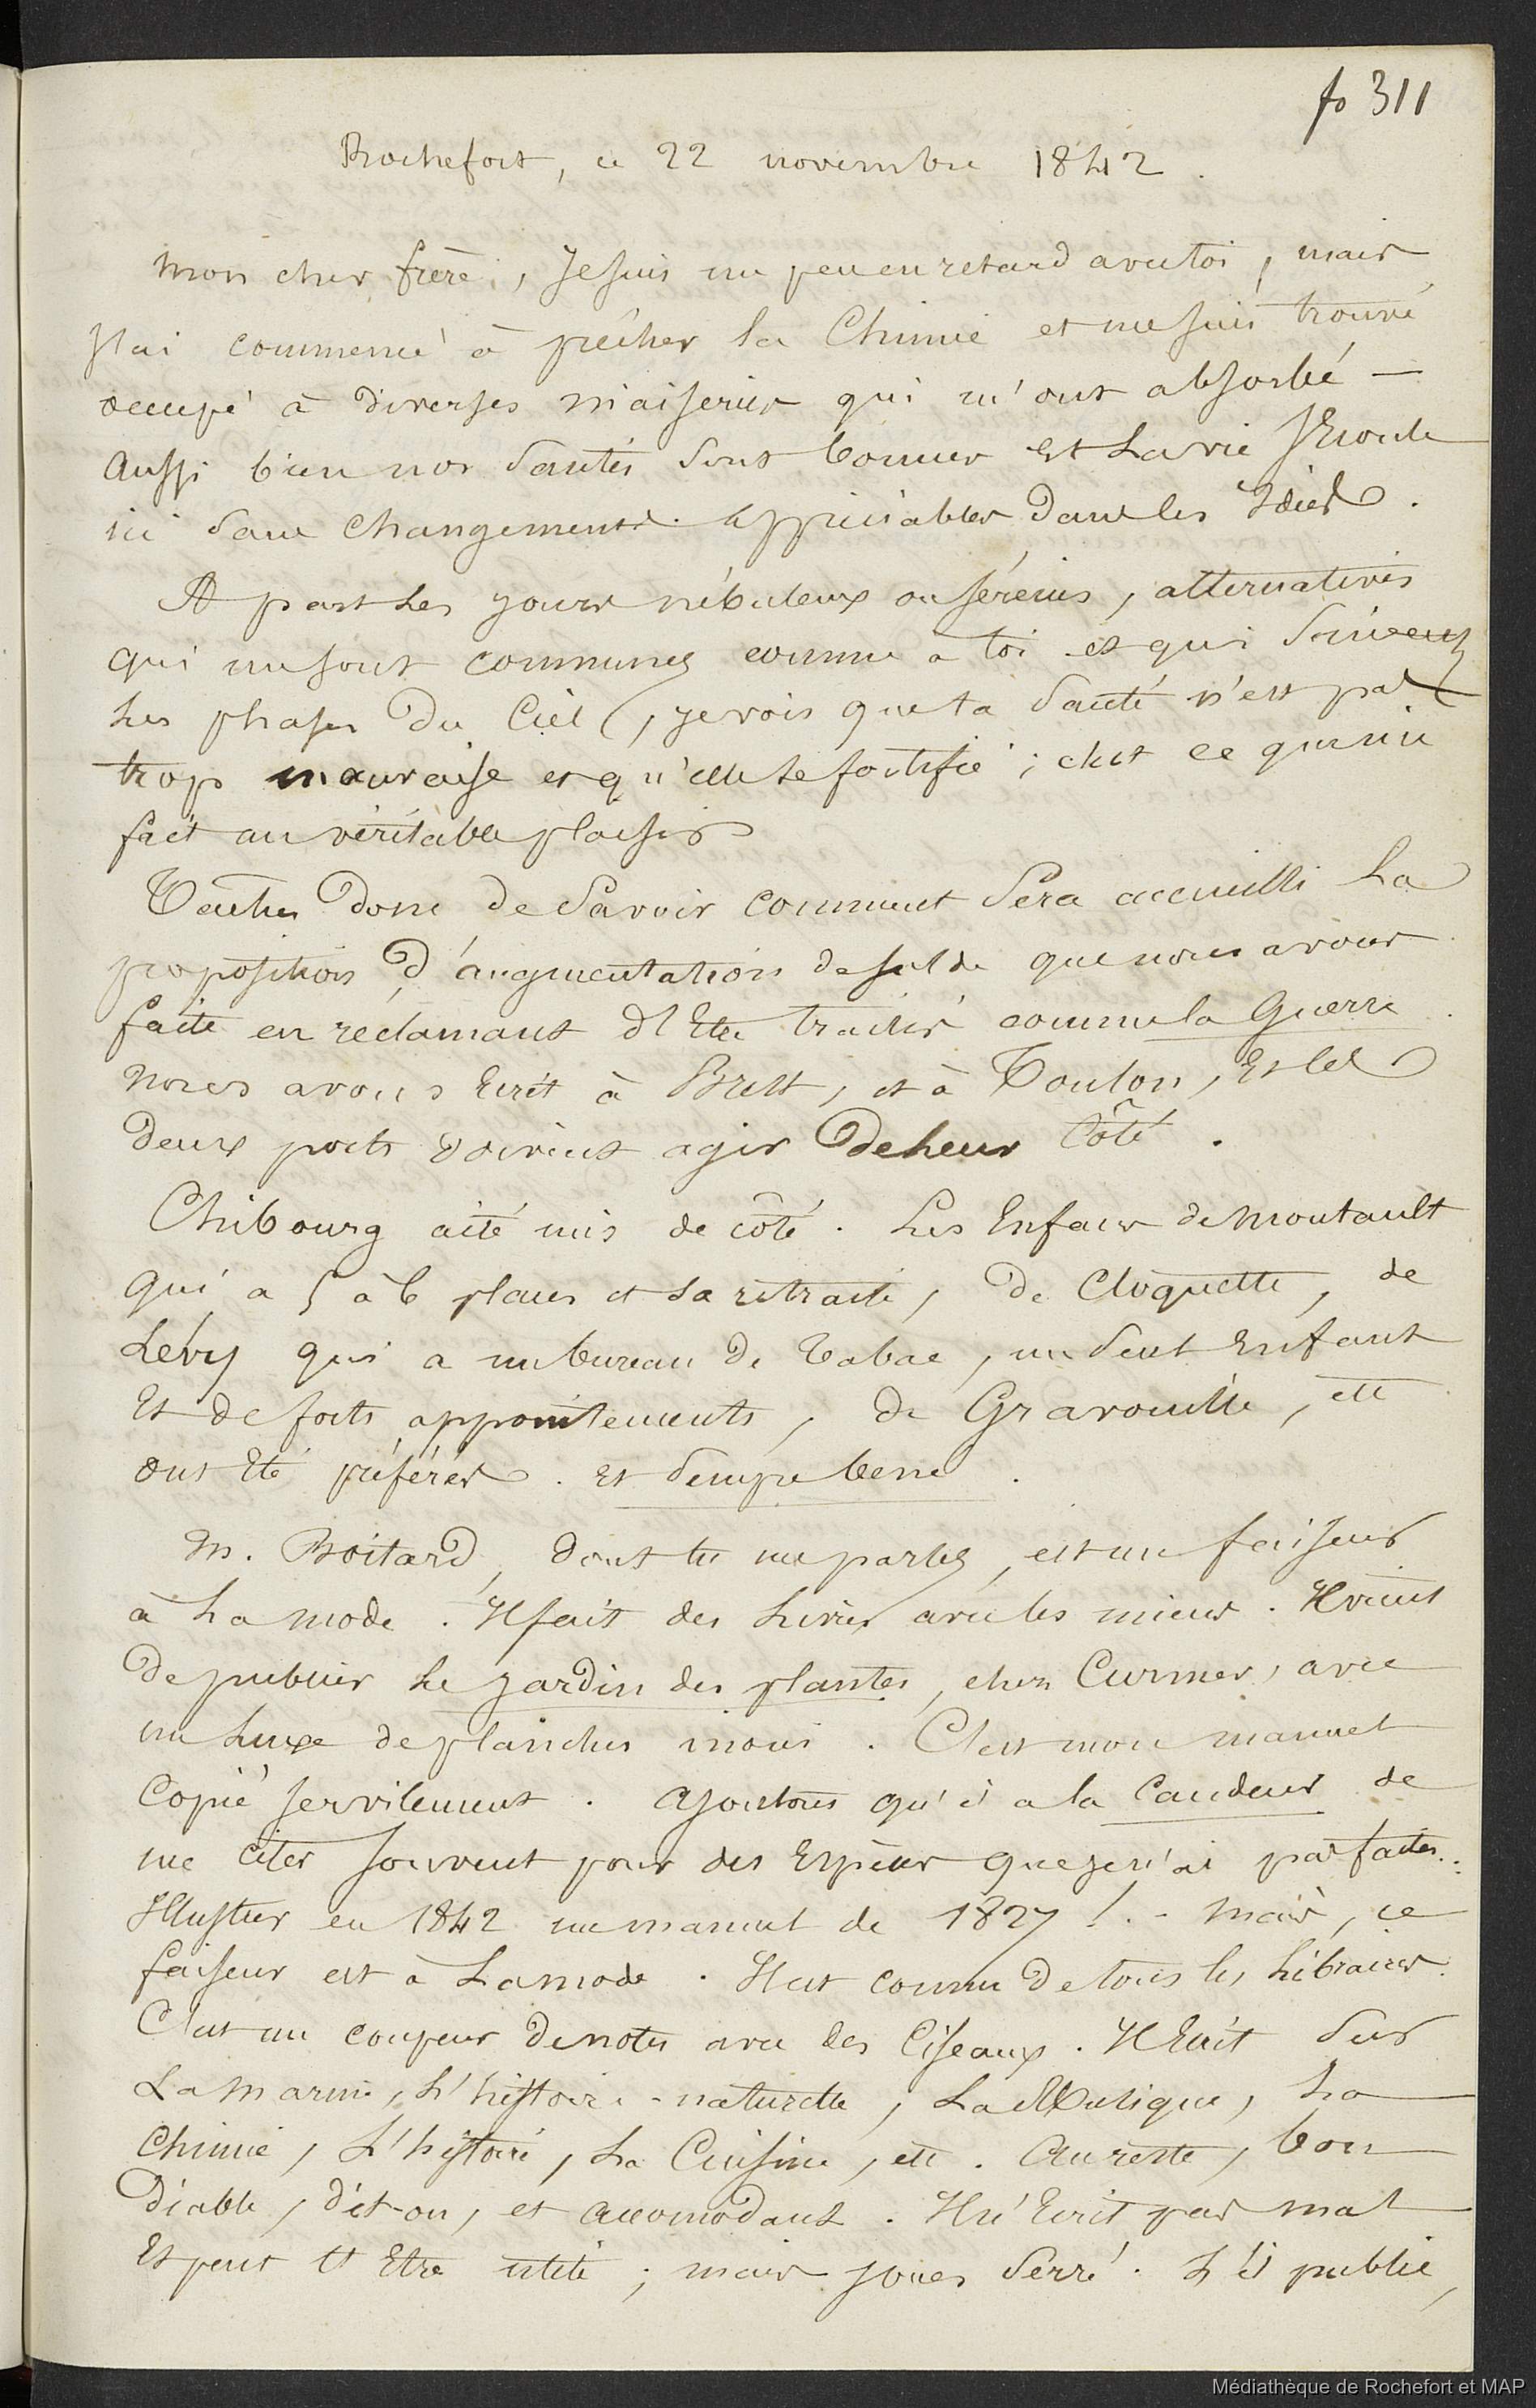 fo 311
Rochefort, ce 22 novembre 1842.
Mon cher frère, Je suis un peu en retard avec toi, mais
J'ai commencé à prêcher la Chimie et me suis trouvé
occupé à diverses niaiseries qui m'ont absorbé —
Aussi bien nos Santés sont bonnes Et La vie s'Ecoule
ici sans changements appréciables dans les Idées.
A part Les jours nébuleux ou séreins, alternatives
qui me sont communes comme à toi et qui suivent
Les phases du Ciel, je vois que ta Santé n'est pas
trop mauvaise et qu'elle se fortifie ; c'est ce qui me
fait un véritable plaisir
Taches donc de Savoir comment Sera accueilli La
proposition d'augmentation de solde que nous avons
faite en réclamant d'Etre traités comme la Guerre.
Nous avons Ecrit à Brest, et à Toulon, Et les
deux ports doivent agir de Leur Côté.
Chibourg a été mis de côté. Les Enfans de Montault
qui a 5 à 6 places et sa retraite, de Cloquette, de
Lévy qui a un bureau de Tabac, un seul Enfant
Et de forts appointements, de Gravouille, etc
ont Eté préférés. Et Sempre bene.
M. Boitard, dont tu me parles, est un faiseur
à La mode. Il fait des Livres avec les miens. Il vient
de publier Le jardin des plantes, chez Curmer, avec
un Luxe de planches inoui. C'est mon manuel
Copié servilement. Ajoutons qu'il a la Candeur de
me citer souvent pour des Espèces que je n'ai pas faites.
Illustrer en 1842 un manuel de 1827 !.- Mais, ce
faiseur est à La mode. Il est connu de tous les Libraires.
C'est un coupeur de notes avec des Ciseaux. Il Ecrit sur
La Marine, L'histoire-naturelle, La Musique, La
Chimie, L'histoire, La Cuisine, etc. Au reste, bon
Diable, dit-on, et accomodant. Il n'Ecrit pas mal
Et peut t'Etre utile ; mais joues Serré. S'il publie,
Médiathèque de Rochefort et MAP